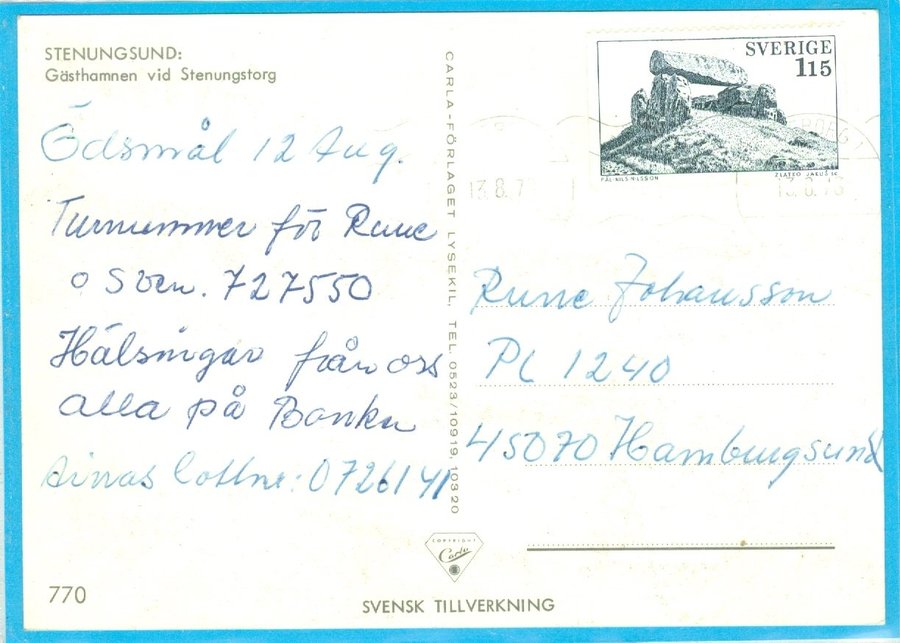 STENUNGSUND:
Gästhamnen vid Stenungstorg
Ödsmål 12 Aug.
Turnummer för Rune
o Sven. 727550
Hälsningar från oss
alla på Banken
Ainas lottnr: 0726141
770
CARLA-FÖRLAGET LYSEKIL, TEL. 0523/10919, 10320
COPYRIGHT
Carla
SVENSK TILLVERKNING
SVERIGE
115
PÅL-NILS NILSSON
ZLATKO JAKUS SC
13.8.7
13.8.73
Rune Johansson
PL 1240
45070 Hamburgsund